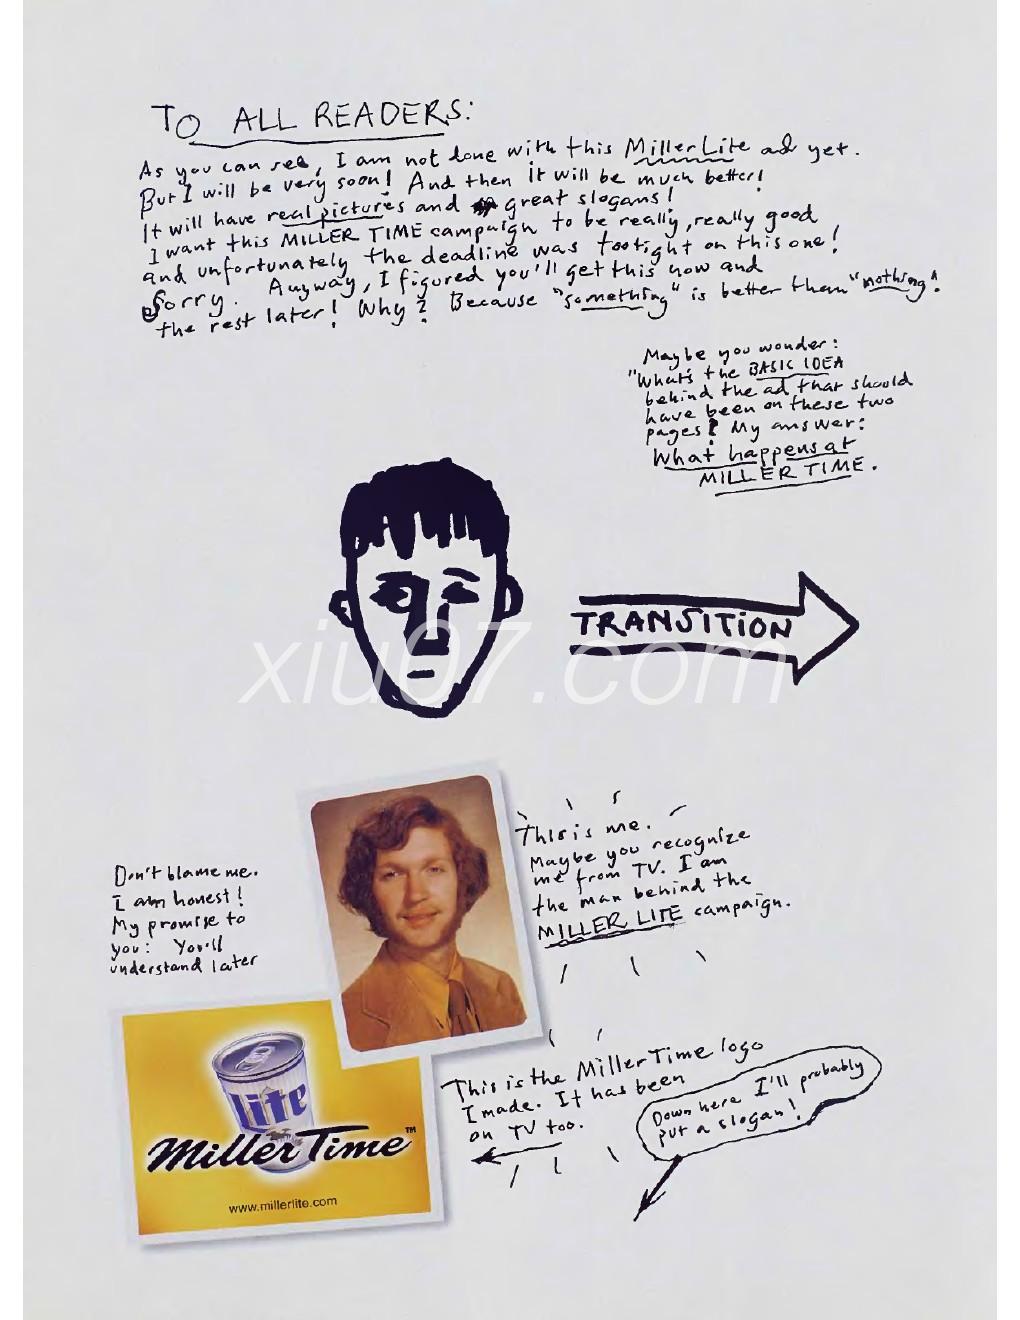 TO ALL READERS:
As you can see, I am not done with this Miller Lite ad yet.
But I will be very soon! And then it will be much better!
It will have real pictures and great slogans!
I want this MILLER TIME campaign to be really, really good
and unfortunately the deadline was too tight on this one!
Sorry. Anyway, I figured you'll get this now and
the rest later! Why? Because "something" is better than "nothing"!
Maybe you wonder:
"What's the BASIC IDEA
behind the ad that should
have been on these two
pages? My answer:
What happens at
MILLER TIME.
TRANSITION
xiu07.com
This is me.
Maybe you recognize
me from TV. I am
the man behind the
MILLER LITE campaign.
Don't blame me.
I am honest!
My promise to
you: You'll
understand later
Lite
Miller Time™
www.millerlite.com
This is the Miller Time logo
I made. It has been
on TV too.
Down here I'll probably
put a slogan!